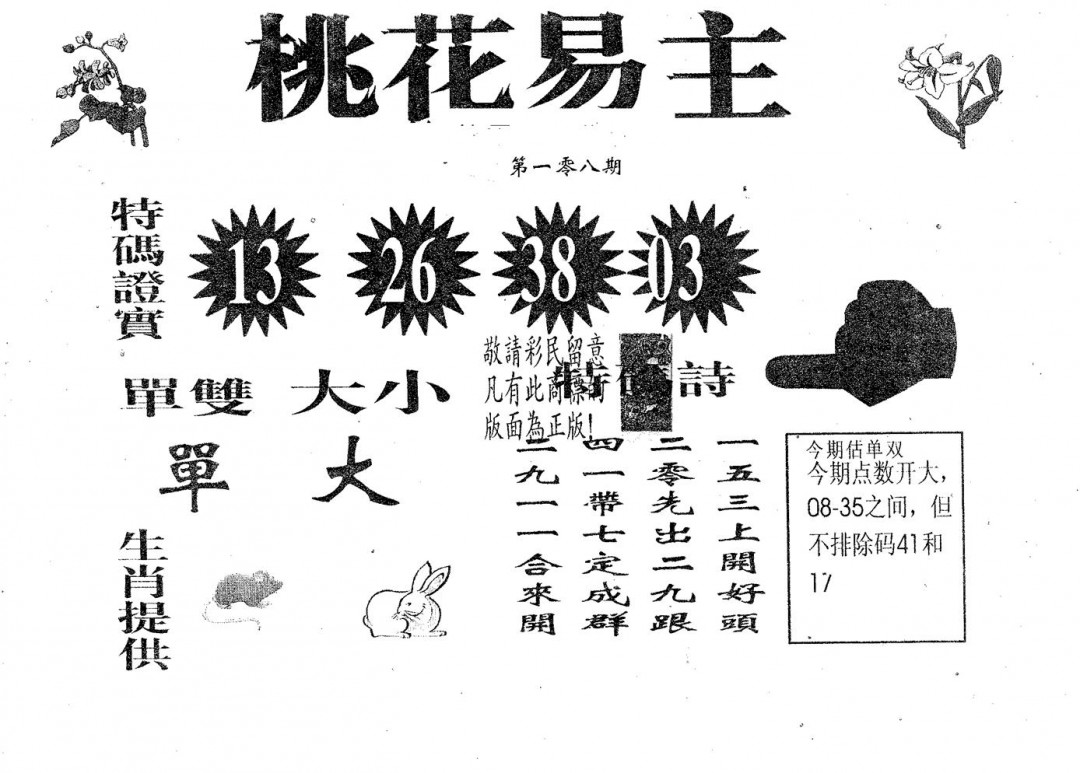 桃花易主
第一零八期
特碼證實
13 26 38 03
單雙 大小
單 大
敬請彩民留意
凡有此商標的
版面為正版!
特碼詩
一五三上開好頭
二零先出二九跟
四一帶七定成群
二九一一合來開
今期估单双
今期点数开大，
08-35之间，但
不排除码41和
17
生肖提供